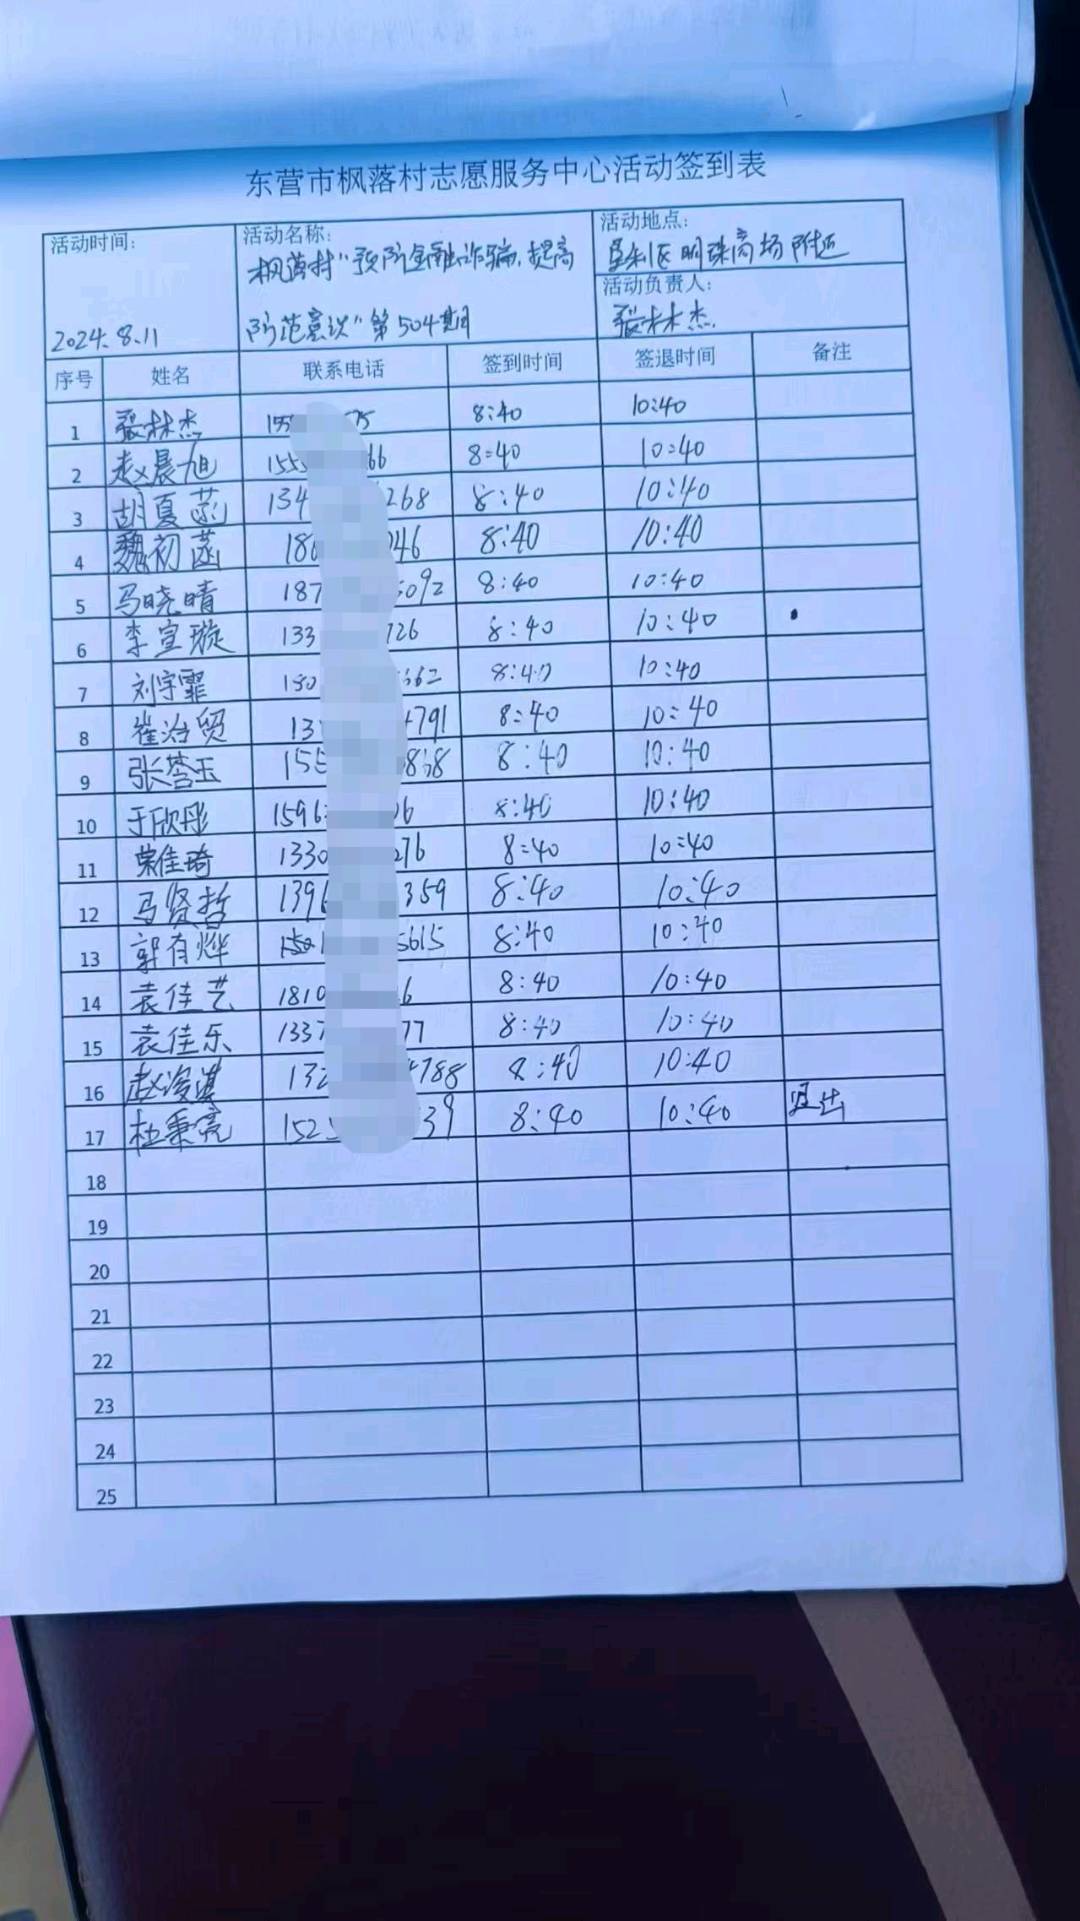 东营市枫落村志愿服务中心活动签到表
活动时间: 2024.8.11
活动名称: 枫落村"预防金融诈骗,提高
防范意识"第504期
活动地点: 垦利区明珠商场附近
活动负责人: 张林杰
序号 姓名 联系电话 签到时间 签退时间 备注
1 张林杰 155 75 8:40 10:40
2 赵晨旭 155 66 8:40 10:40
3 胡夏菡 134 268 8:40 10:40
4 魏初菡 180 046 8:40 10:40
5 马晓晴 187 5092 8:40 10:40
6 李宣璇 133 726 8:40 10:40
7 刘宇霏 180 662 8:40 10:40
8 崔治贸 13 4791 8:40 10:40
9 张答玉 155 868 8:40 10:40
10 于欣彤 1596 06 8:40 10:40
11 荣佳琦 1330 276 8:40 10:40
12 马贤哲 1396 359 8:40 10:40
13 郭有烨 1501 5615 8:40 10:40
14 袁佳艺 1810 6 8:40 10:40
15 袁佳乐 1337 77 8:40 10:40
16 赵浚淇 132 4788 8:40 10:40
17 杜秉亮 1525 39 8:40 10:40
18
19
20
21
22
23
24
25